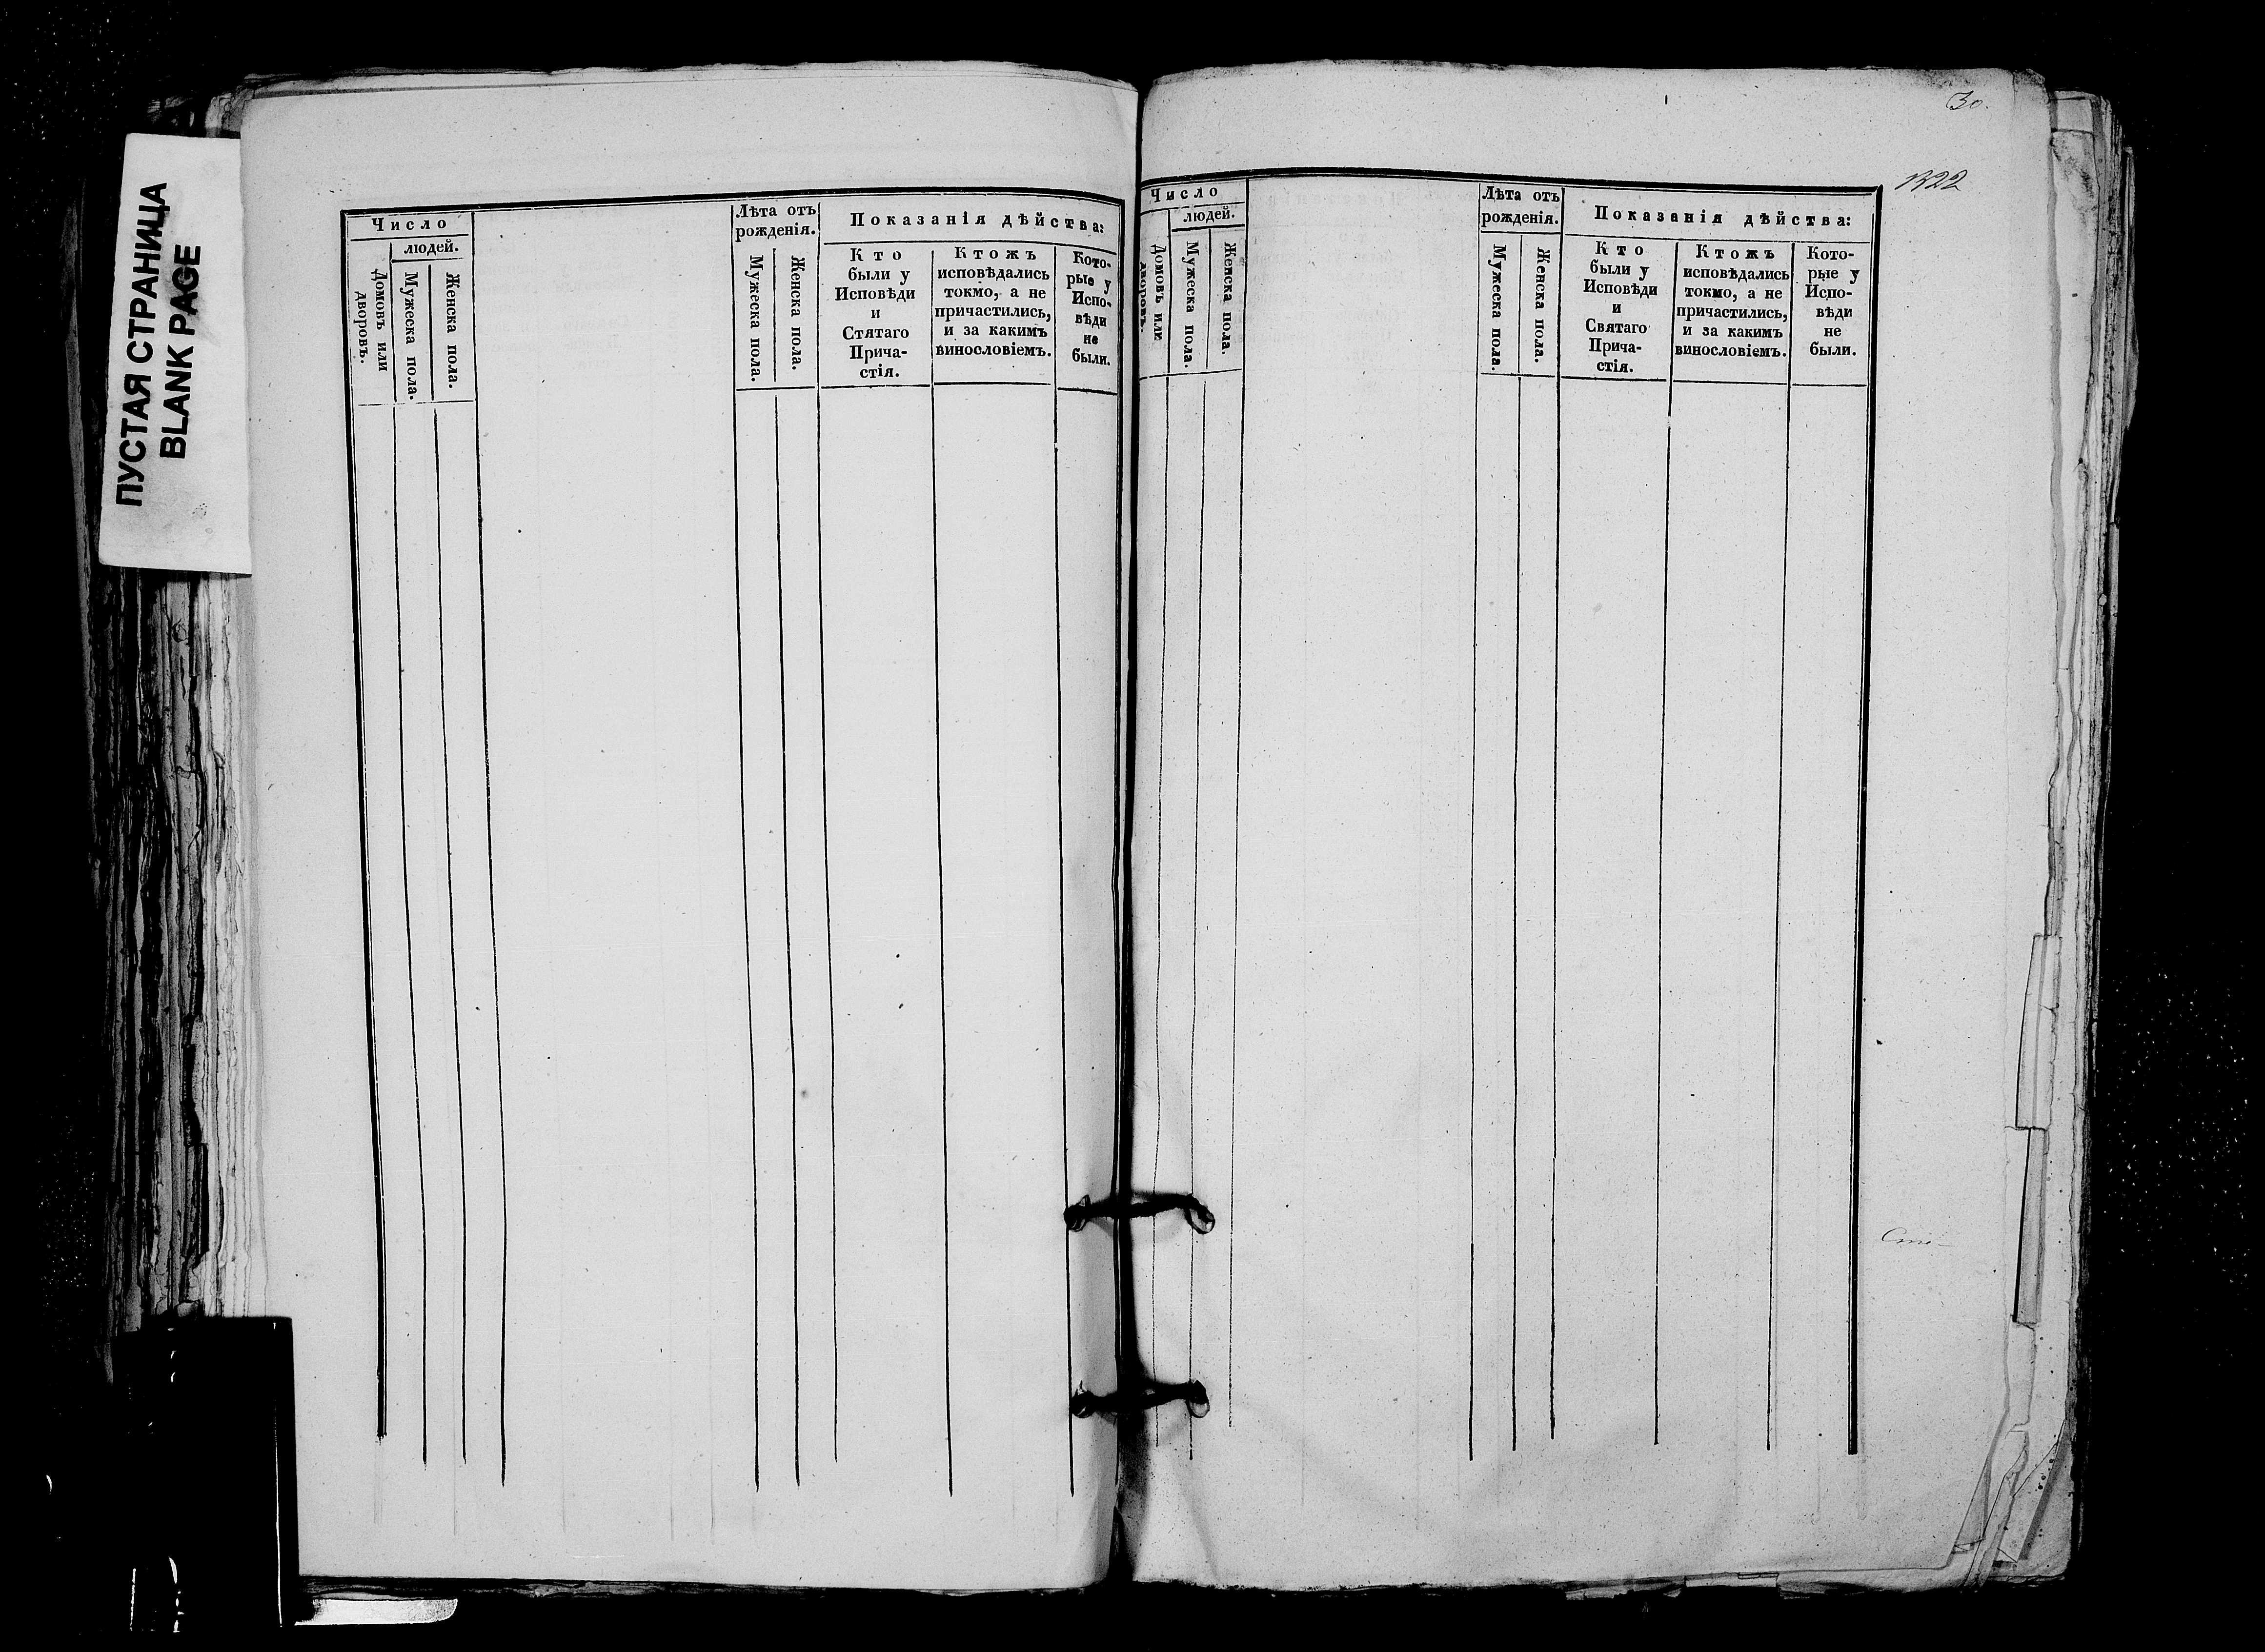 ПУСТАЯ СТРАНИЦА
BLANK PAGE
Число
людей.
Домовъ или
дворовъ.
Мужеска пола.
Женска пола.
Лѣта отъ
рожденія.
Мужеска пола.
Женска пола.
Показанія дѣйства:
Кто
были у
Исповѣди
и
Стятаго
Прича-
стія.
Ктожъ
исповѣдались
токмо, а не
причастились,
и за какимъ
винословіемъ.
Кото-
рые у
Испо-
вѣди
не
были.
30.
1322
Число
людей.
Домовъ или
дворовъ.
Мужеска пола.
Женска пола.
Лѣта отъ
рожденія.
Мужеска пола.
Женска пола.
Показанія дѣйства:
Кто
были у
Исповѣди
и
Святаго
Прича-
стія.
Ктожъ
исповѣдались
токмо, а не
причастились,
и за какимъ
винословіемъ.
Кото-
рые у
Испо-
вѣди
не
были.